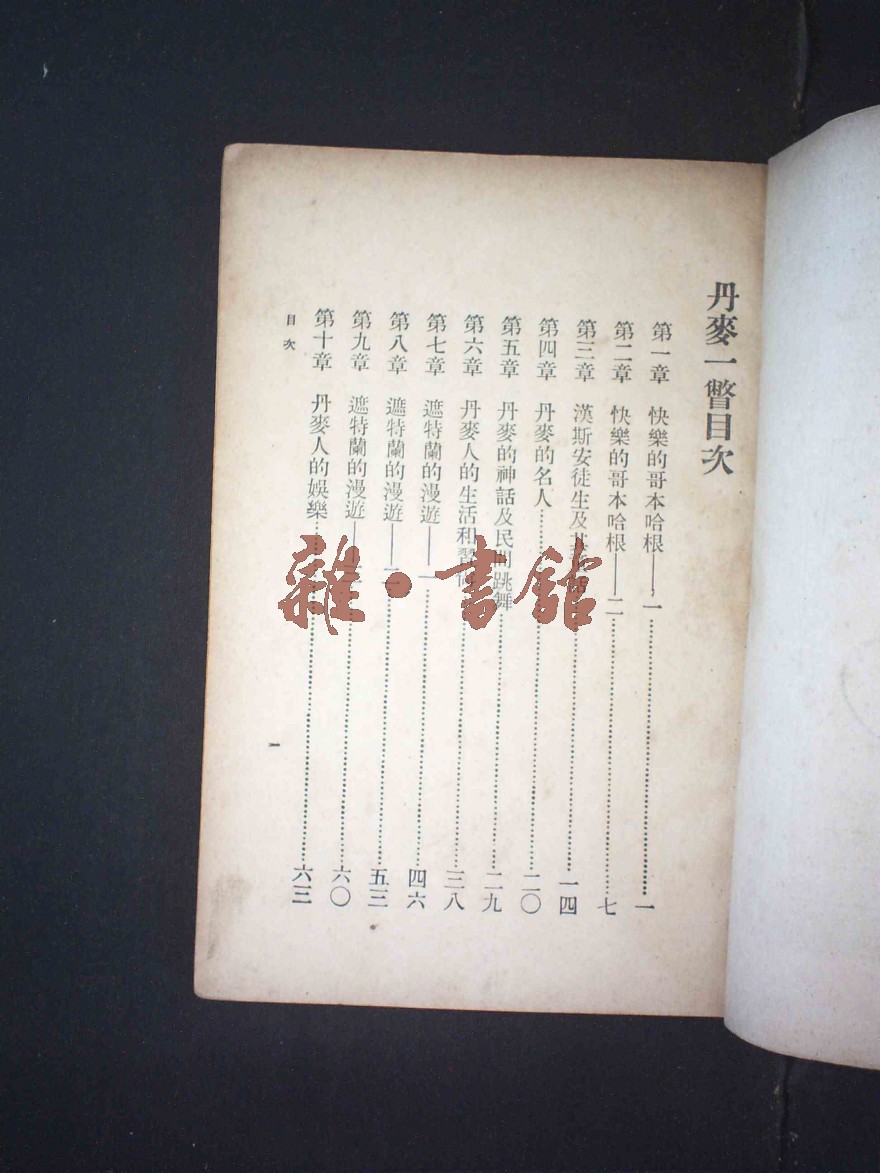 丹麥一瞥目次
第一章 快樂的哥本哈根——一……一
第二章 快樂的哥本哈根——二……七
第三章 漢斯安徒生及……一四
第四章 丹麥的名人……二〇
第五章 丹麥的神話及民間跳舞……二九
第六章 丹麥人的生活和……三八
第七章 遮特蘭的漫遊——一……四六
第八章 遮特蘭的漫遊——二……五三
第九章 遮特蘭的漫遊——……六〇
第十章 丹麥人的娛樂……六三
目次
一
雜·書館